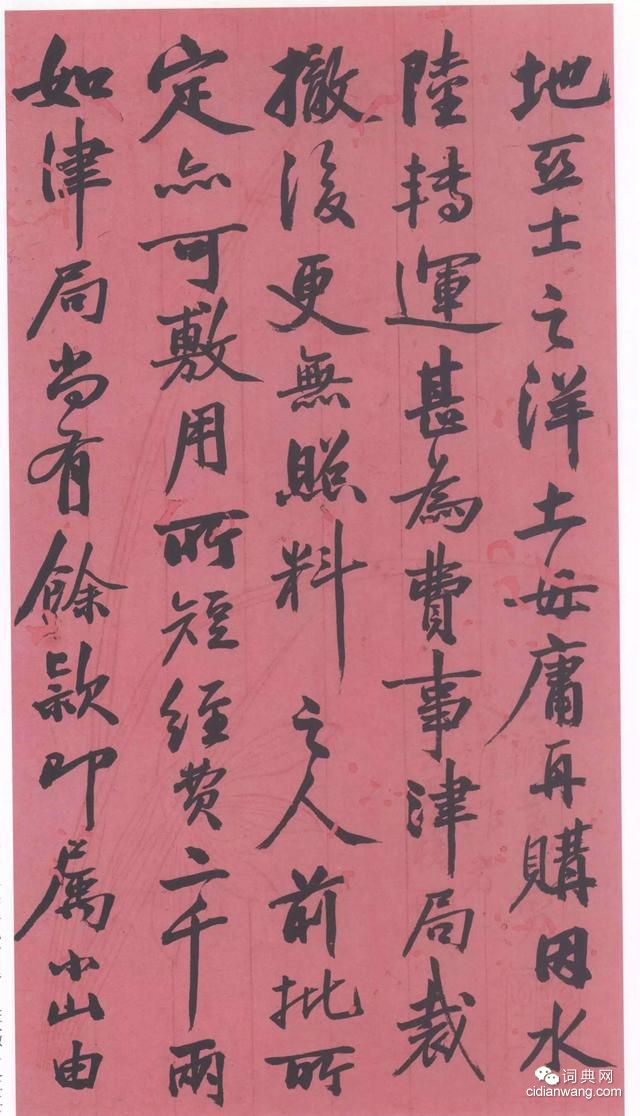 地亞士之洋土毋庸再購因水
陸轉運甚為費事津局裁
撤後更無照料之人前批所
定亦可敷用所短經費二千兩
如津局尚有餘款即屬小山由
词典网
cidianwang.com